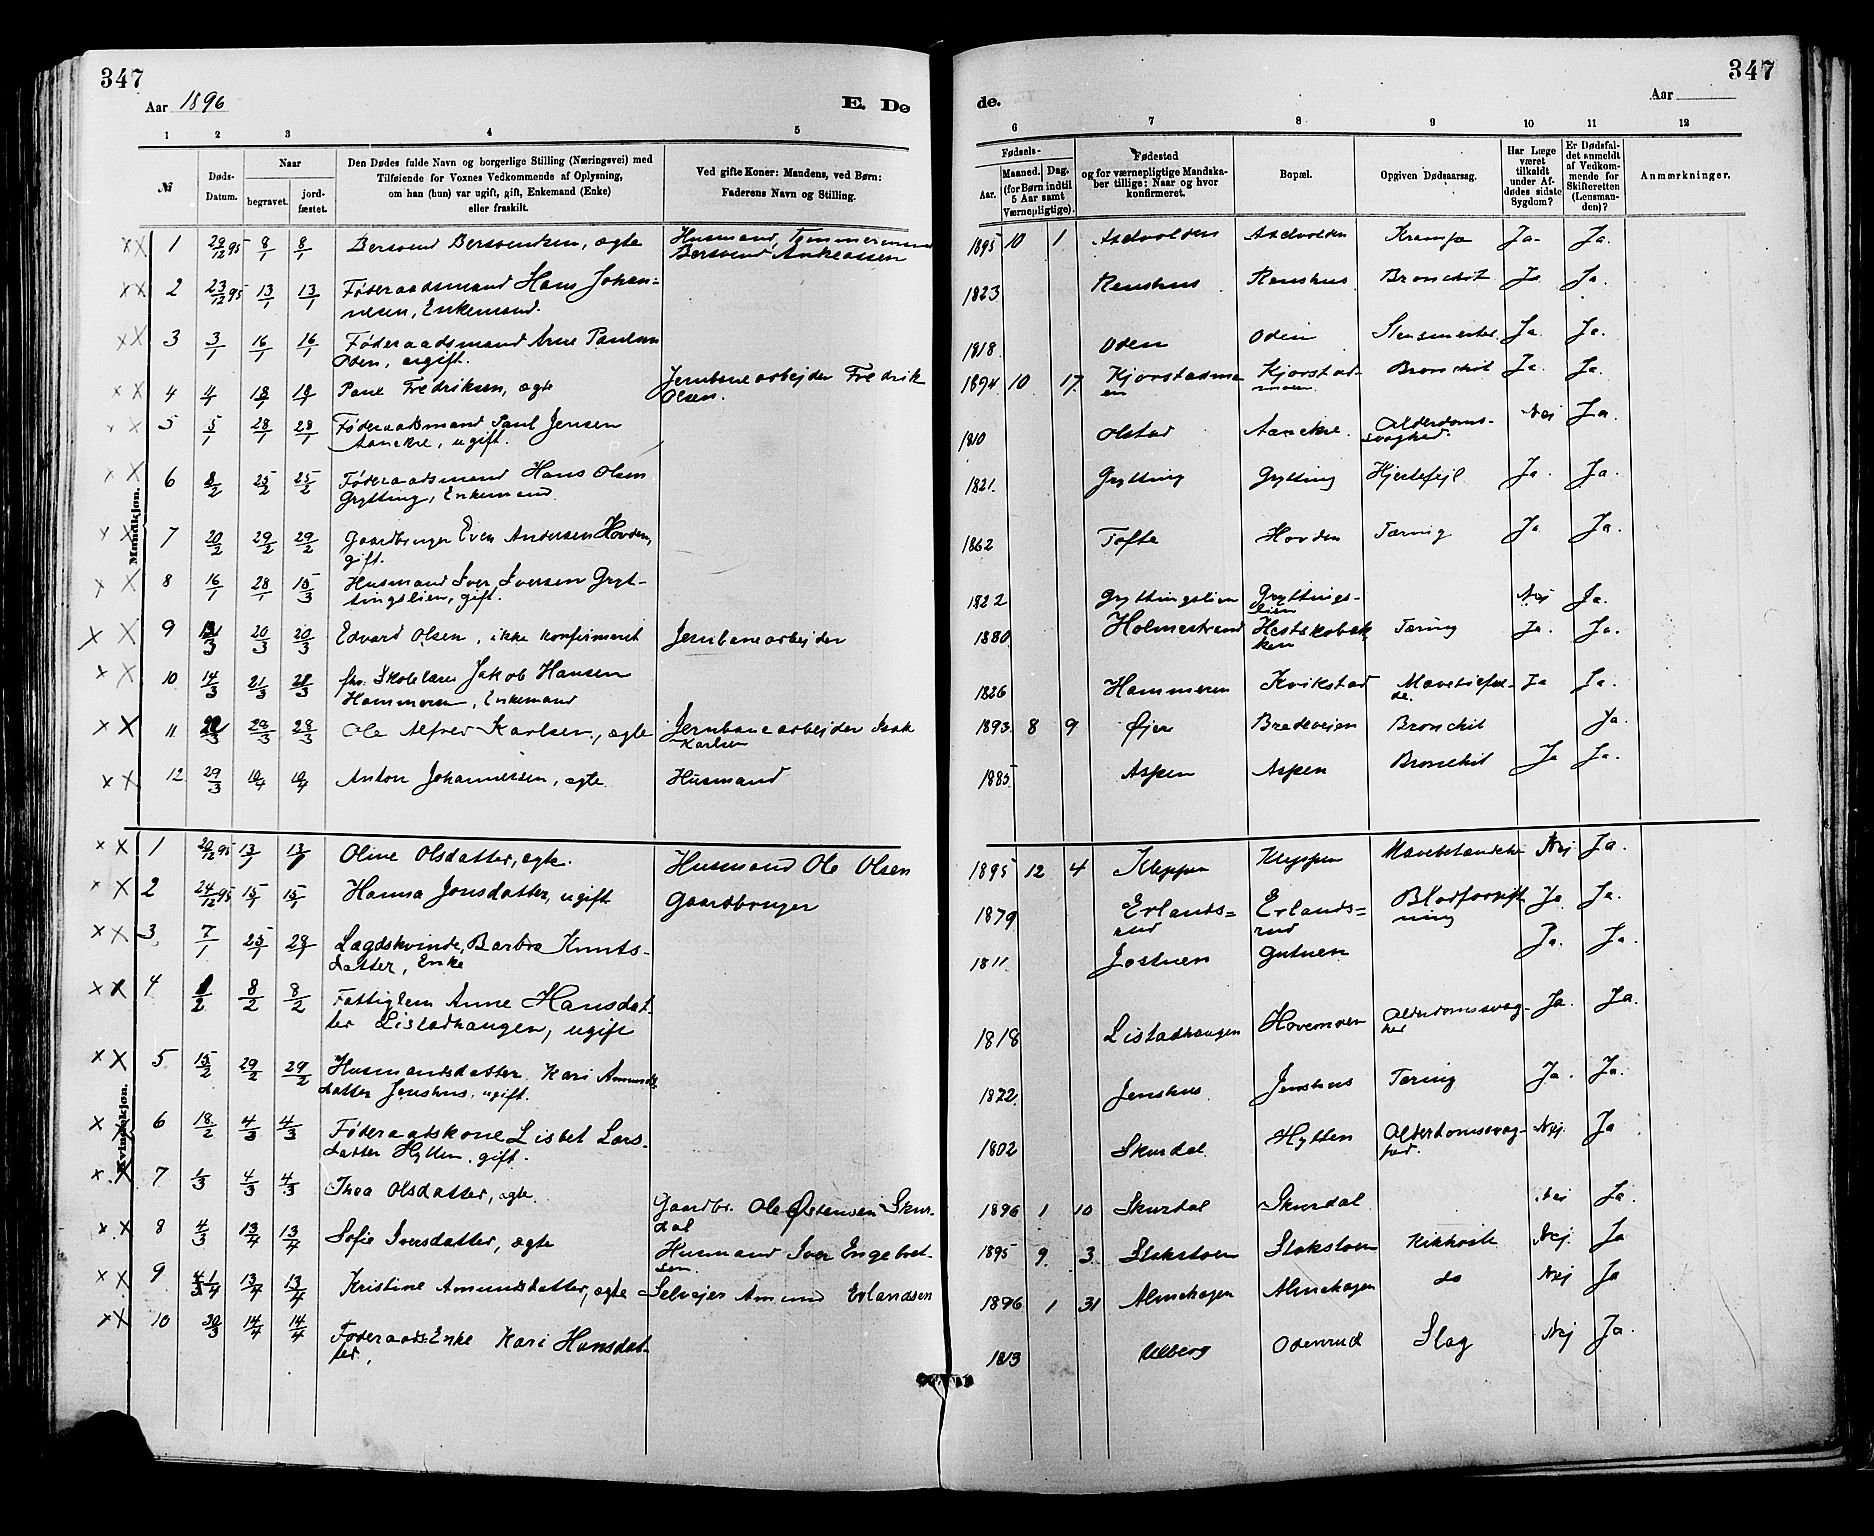 347
347
Aar 1896
E. Dø
de.
Aar
1 2 3 4 5 6 7 8 9 10 11 12
№
Døds-Datum.
Naar
begravet.
jord-fæstet.
Den Dødes fulde Navn og borgerlige Stilling (Næringsvei) med
Tilføiende for Voxnes Vedkommende af Oplysning,
om han (hun) var ugift, gift, Enkemand (Enke)
eller fraskilt.
Ved gifte Koner: Mandens, ved Børn:
Faderens Navn og Stilling.
Fødsels-
Aar.
Maaned. Dag.
(for Børn indtil
5 Aar samt
Værnepligtige).
Fødested
og for værnepligtige Mandska-
ber tillige: Naar og hvor
konfirmeret.
Bopæl.
Opgiven Dødsaarsag.
Har Læge
været
tilkaldt
under Af-
dødes sidste
Sygdom?
Er Dødsfal-
det anmeldt
af Vedkom-
mende for
Skifteretten
(Lensman-
den)?
Anmærkninger.
Mandkjøn.
1 8/1 8/1 Bersvend Bersvendsen, ægte Husmand, Tømmermand 1895 10 1 Krampe Ja. Ja.
Bersvend Andreassen
2 23/12 95 13/1 13/1 Føderaadsmand Hans Johan- 1823 Renshus Renshus Bronchit Ja Ja.
nesen, Enkemand.
3 3/1 16/1 16/1 Føderaadsmand Arne Paulsen 1818 Oden Oden Ja. Ja.
Oden, ugift.
4 4/1 18/1 18/1 Fredriksen, ægte Jernbanearbejder Fredrik 1894 10 17. Kjorstadmo Kjorstad- Bronchit Ja. Ja.
Olsen. en moen
5 5/1 28/1 28/1 Føderaadsmand Paul Jensen 1810 Olstad Aanekre. Alderdoms- Nej Ja.
Aanekre, ugift. svaghed.
6 25/2 25/2 Føderaadsmand Hans Olsen 1821. Grytting Grytting Hjertefejl Ja. Ja.
Grytting, Enkemand.
7 20/2 29/2 29/2 Gaardbruger Even Andersen Hovden, 1862 Tofte Hovden Tæring Ja Ja.
gift.
8 16/1 28/1 15/3 Husmand Iver Iversen Gryt- 1822 Gryttingslien Gryttings- Nej Ja.
tingslien, gift. lien
9 20/3 20/3 Edvard Olsen, ikke konfirmeret Jernbanearbejder 1880 Holmestrand Hestskobak Tæring Ja. Ja.
ken
10 14/3 21/3 21/3 fhv. Skolelærer Jakob Hansen 1826 Hammeren Kvikstad Ja Ja.
Hammeren, Enkemand
11 28/3 28/3 Ole Alfred Karlsen, ægte Jernbanearbejder Isak 1893 8 9 Øjer Bradeveien Bronchit Ja.
Karlsen
12 29/3 10/4 10/4 Anton Johannessen, ægte Husmand 1885 Aspen Aspen Bronchit Ja Ja.
Kvindekjøn.
1 20/12 95 13/1 13/1 Oline Olsdatter, ægte. Husmand Ole Olsen 1895 12 4 Kleppen Kleppen Nej Ja.
2 24/12 95 15/1 15/1 Hanna Jonsdatter, ugift Gaardbruger 1879 Erlands= Erlands= Blodforgift Ja Ja.
rud rud ning
3 7/1 25/1 Lægdskvinde, Barbra Knuts- 1811. Jostuen Gutuen Ja. Ja.
datter, Enke
4 8/2 8/2 Fattiglem Anne Hansdat- 1818 Listadhaugen Hovemoen Alderdomssvag- Ja. Ja.
ter Listadhaugen, ugift hed
5 15/2 29/2 29/2 Husmandsdatter Kari Amunds 1822. Jenshus Jenshus Tæring Ja. Ja.
datter Jenshus, ugift.
6 18/2 4/3 4/3 Føderaadskone Lisbet Lars- 1802 Skurdal Hytten Alderdomssvag- Nej. Ja
datter Hytten, gift. hed.
7 1/3 4/3 4/3 Thea Olsdatter, ægte. Gaardbr. Ole Østensen Skur- 1896 1 10 Skurdal Skurdal Nej Ja.
dal
8 4/3 13/4 13/4 Sofie Iversdatter, ægte Husmand Iver Engebret- 1895 9. 3. Stokstoen Stokstoen Kikhoste Nej. Ja
sen.
9 13/4 13/4 Kristine Amundsdatter, ægte Selvejer Amund Erlandsen 1896 1 31 Almehagen Almehagen do Nej Ja
10 30/3 14/4 14/4 Føderaads.Enke Kari Hansdat- 1813 Ulberg Odenrud Slag Nej Ja.
ter,